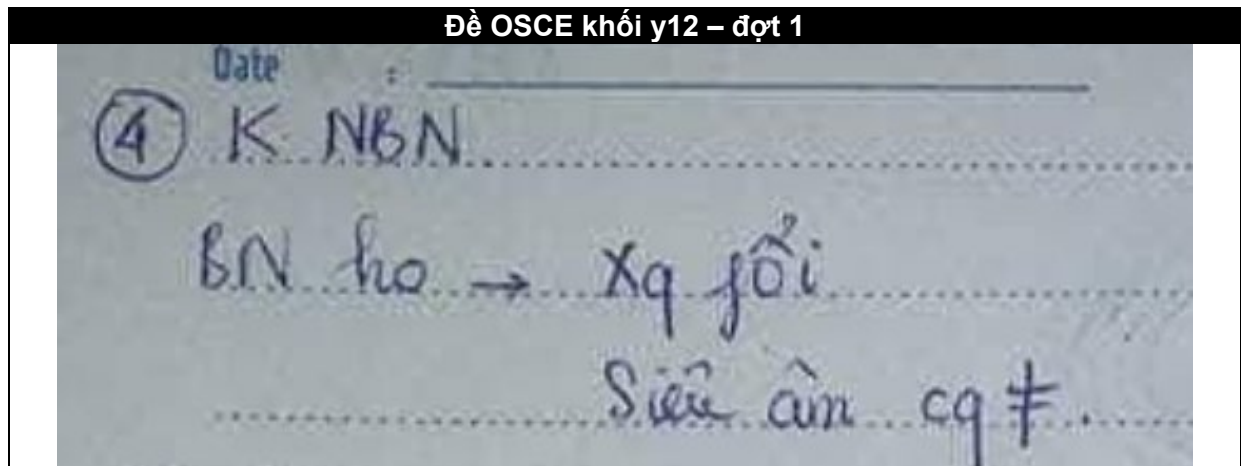 Đề OSCE khối y12 – đợt 1
Date :
④ K NBN
BN ho → Xq fổi
Siêu âm cq ≠.